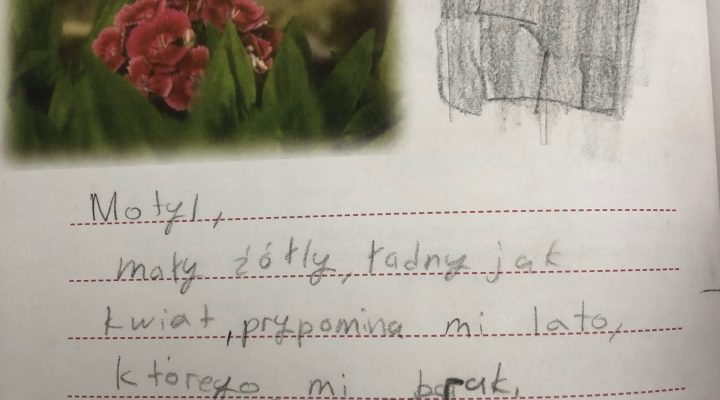 Motyl,
mały źółły, ładny jak
kwiat, prypomina mi lato,
którego mi barak.